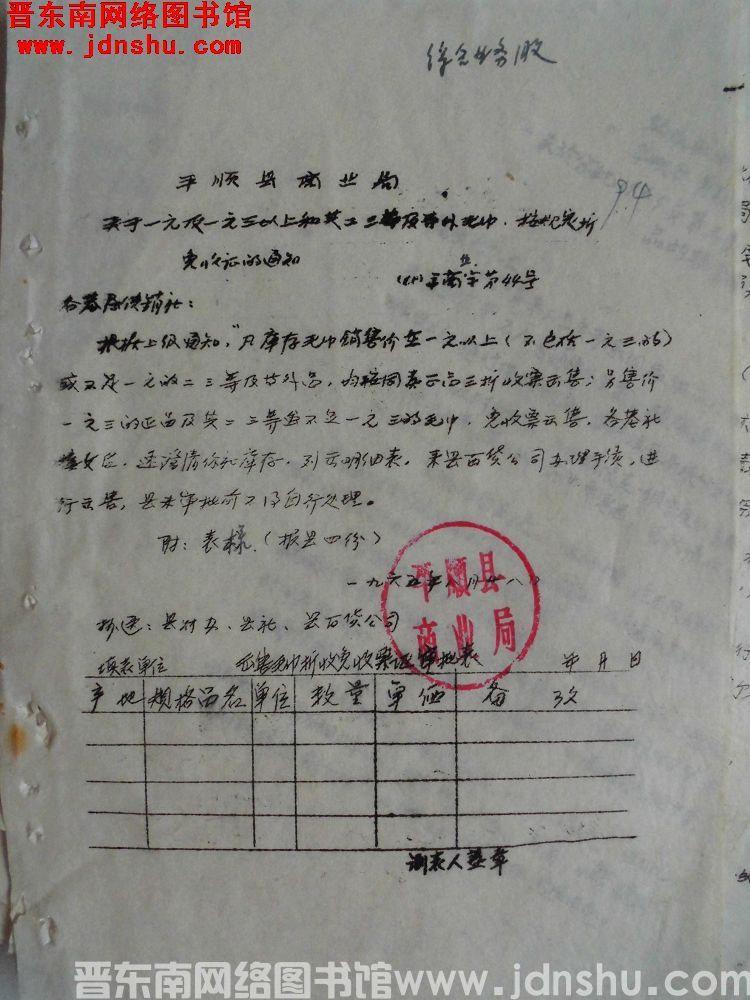 晋东南网络图书馆
www.jdnshu.com
综合业务股
94
平顺县商业局
关于一元及一元三以上和其二三等及等外毛巾，按规定折
免收证的通知
(65)平商业字第44号
各基层供销社：
根据上级通知，"凡库存毛巾销售价在一元以上（不包括一元三的）
或不足一元的二三等及等外品，均按同类正品三折收票出售；另售价
一元三的正品及其二三等虽不足一元三的毛巾，免收票出售。各基社
接文后，迅澄清你社库存，列出明细表，来县百货公司办理手续，进
行出售，县未审批前不得自行处理。
附：表样（报县四份）
一九六五年 月廿八日
平顺县
商业局
抄送：县财办、县社、县百货公司
填表单位 出售毛巾折收免收票证审批表 年 月 日
产地 规格品名 单位 数量 单价 备 考
制表人盖章
晋东南网络图书馆www.jdnshu.com